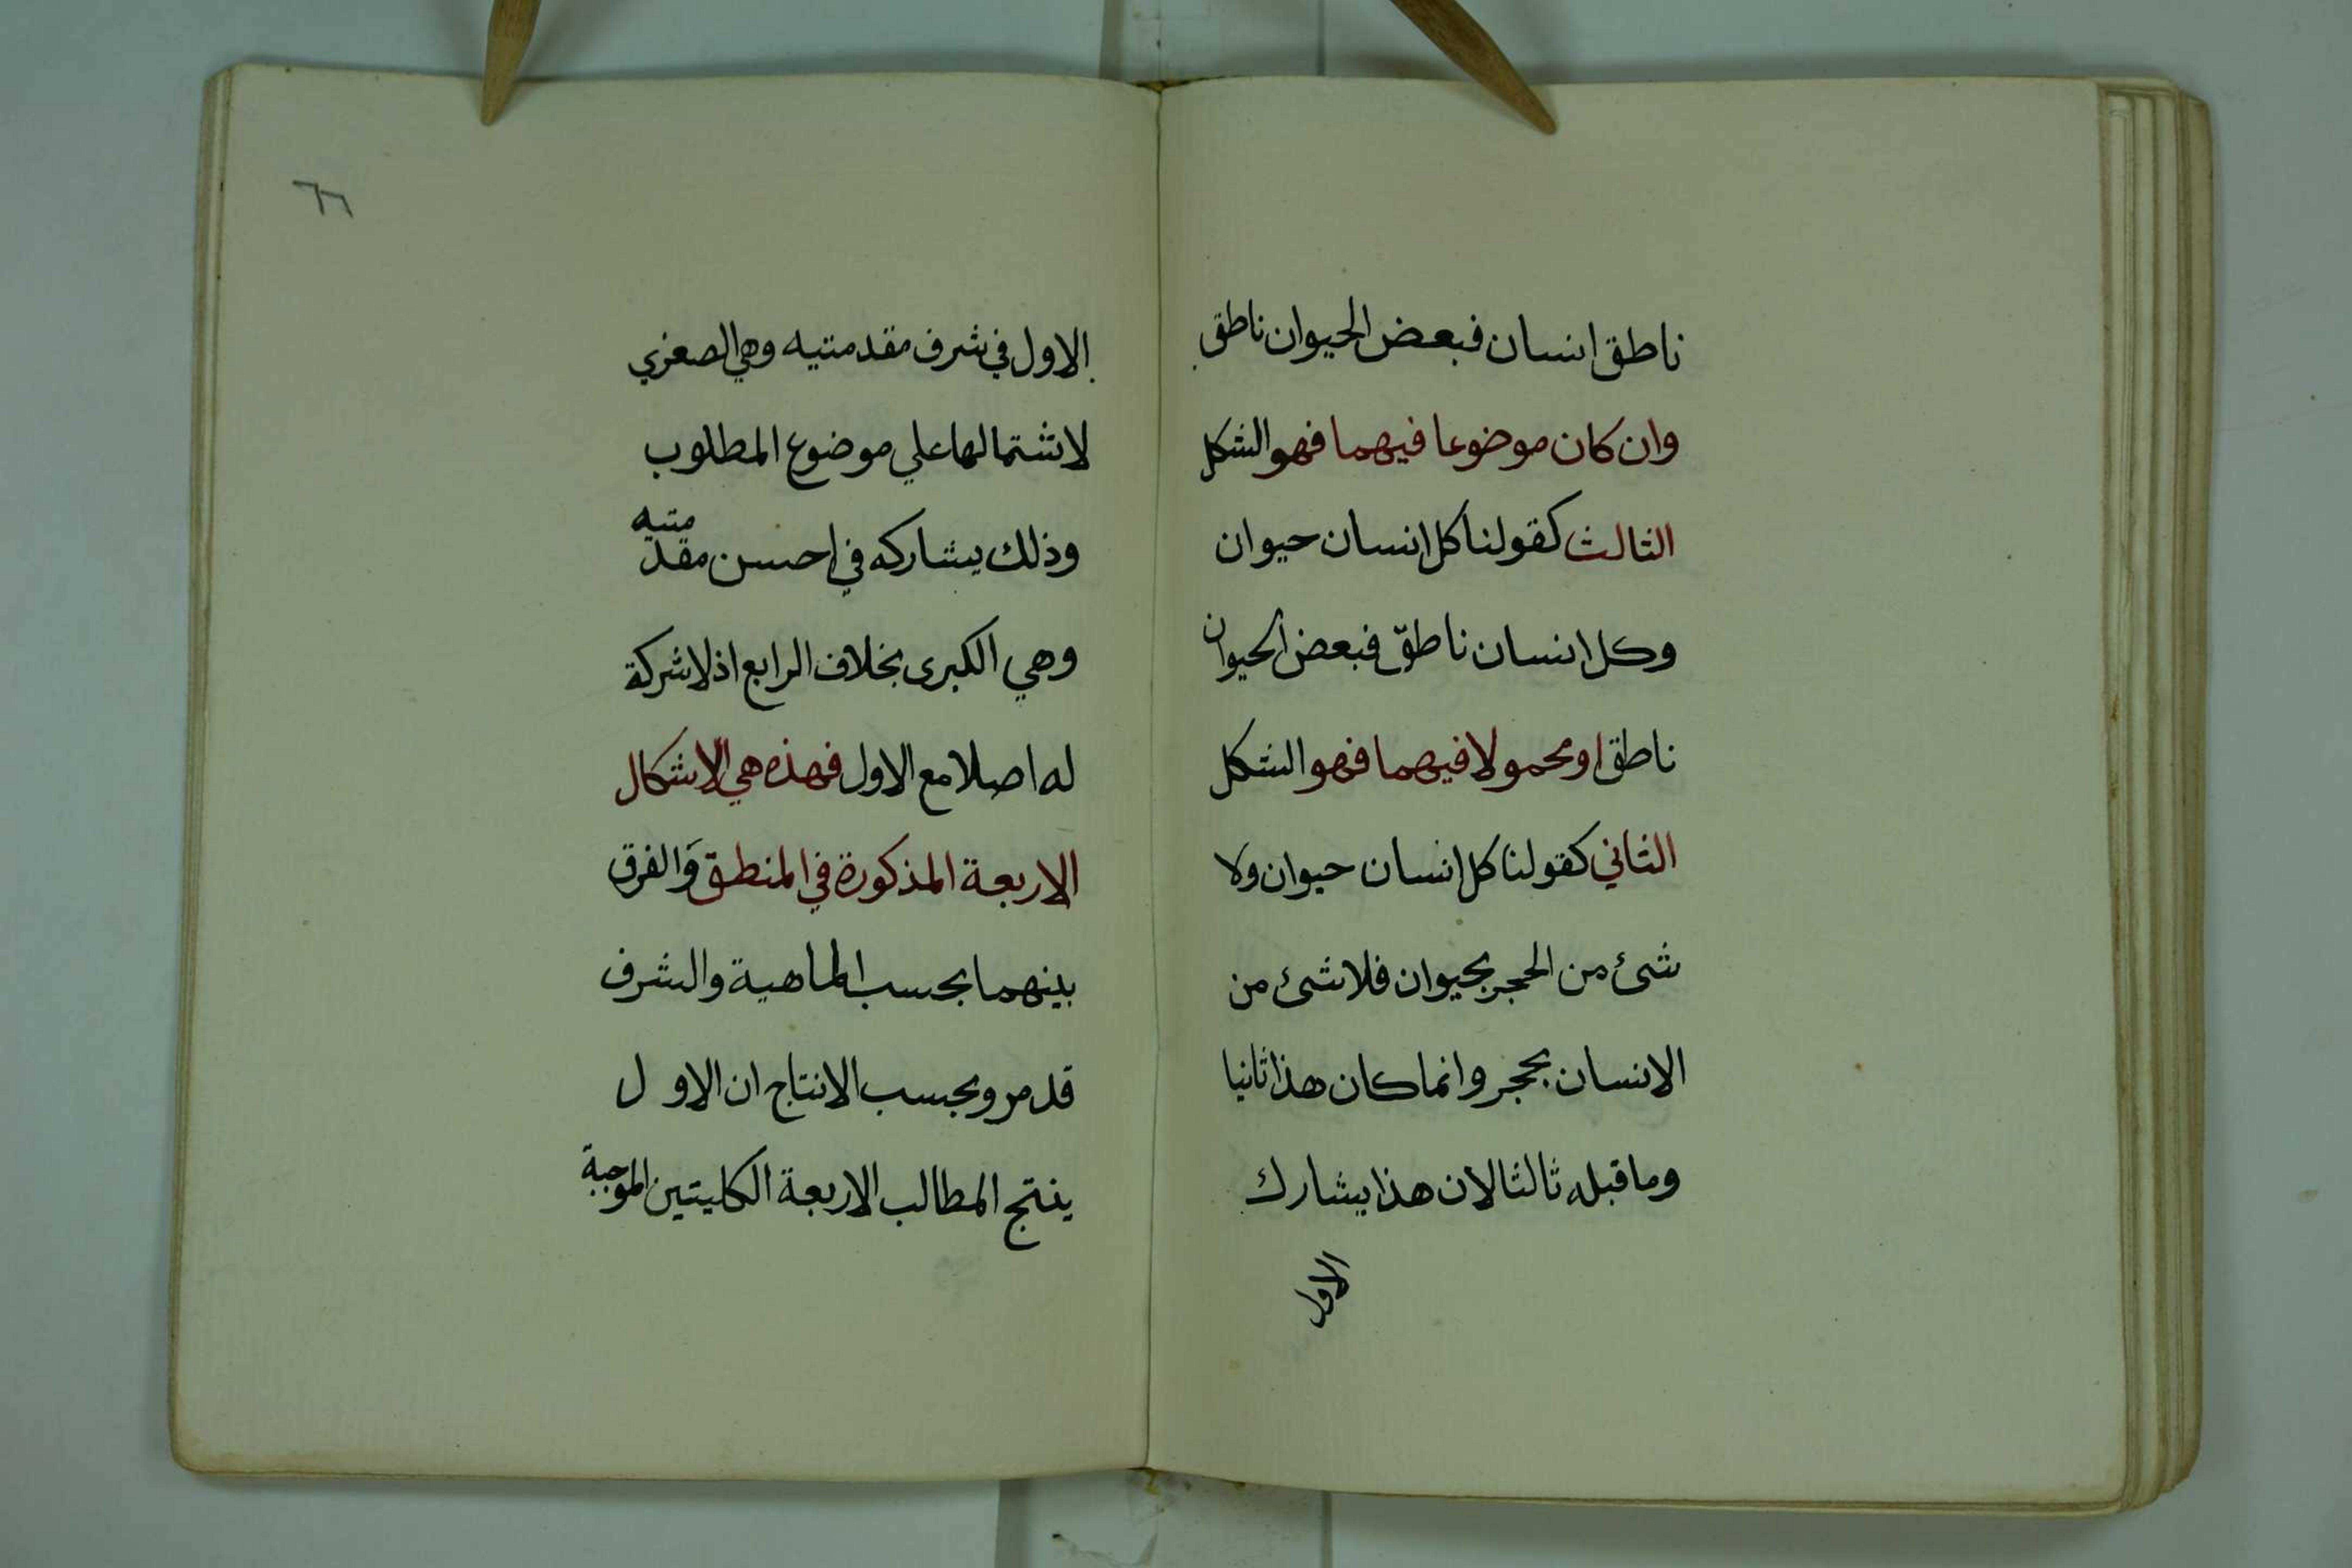 ناطق انسان فبعض الحيوان ناطق
وان كان موضوعا فيهما فهو الشكل
الثالث كقولنا كل انسان حيوان
وكل انسان ناطق فبعض الحيوان
ناطق او محمولا فيهما فهو الشكل
الثاني كقولنا كل انسان حيوان ولا
شئ من الحجر بحيوان فلا شئ من
الانسان بحجر وانما كان هذا ثانيا
وما قبله ثالثا لان هذا يشارك
الاول
٦٦
الاول في شرف مقدمتيه وهي الصغري
لاشتمالها علي موضوع المطلوب
وذلك يشاركه في احسن مقدمتيه
وهي الكبرى بخلاف الرابع اذ لا شركة
له اصلا مع الاول فهذه هي الاشكال
الاربعة المذكورة في المنطق وَالفرق
بينهما بحسب الماهية والشرف
قد مر وبحسب الانتاج ان الاول
ينتج المطالب الاربعة الكليتين الموجبة